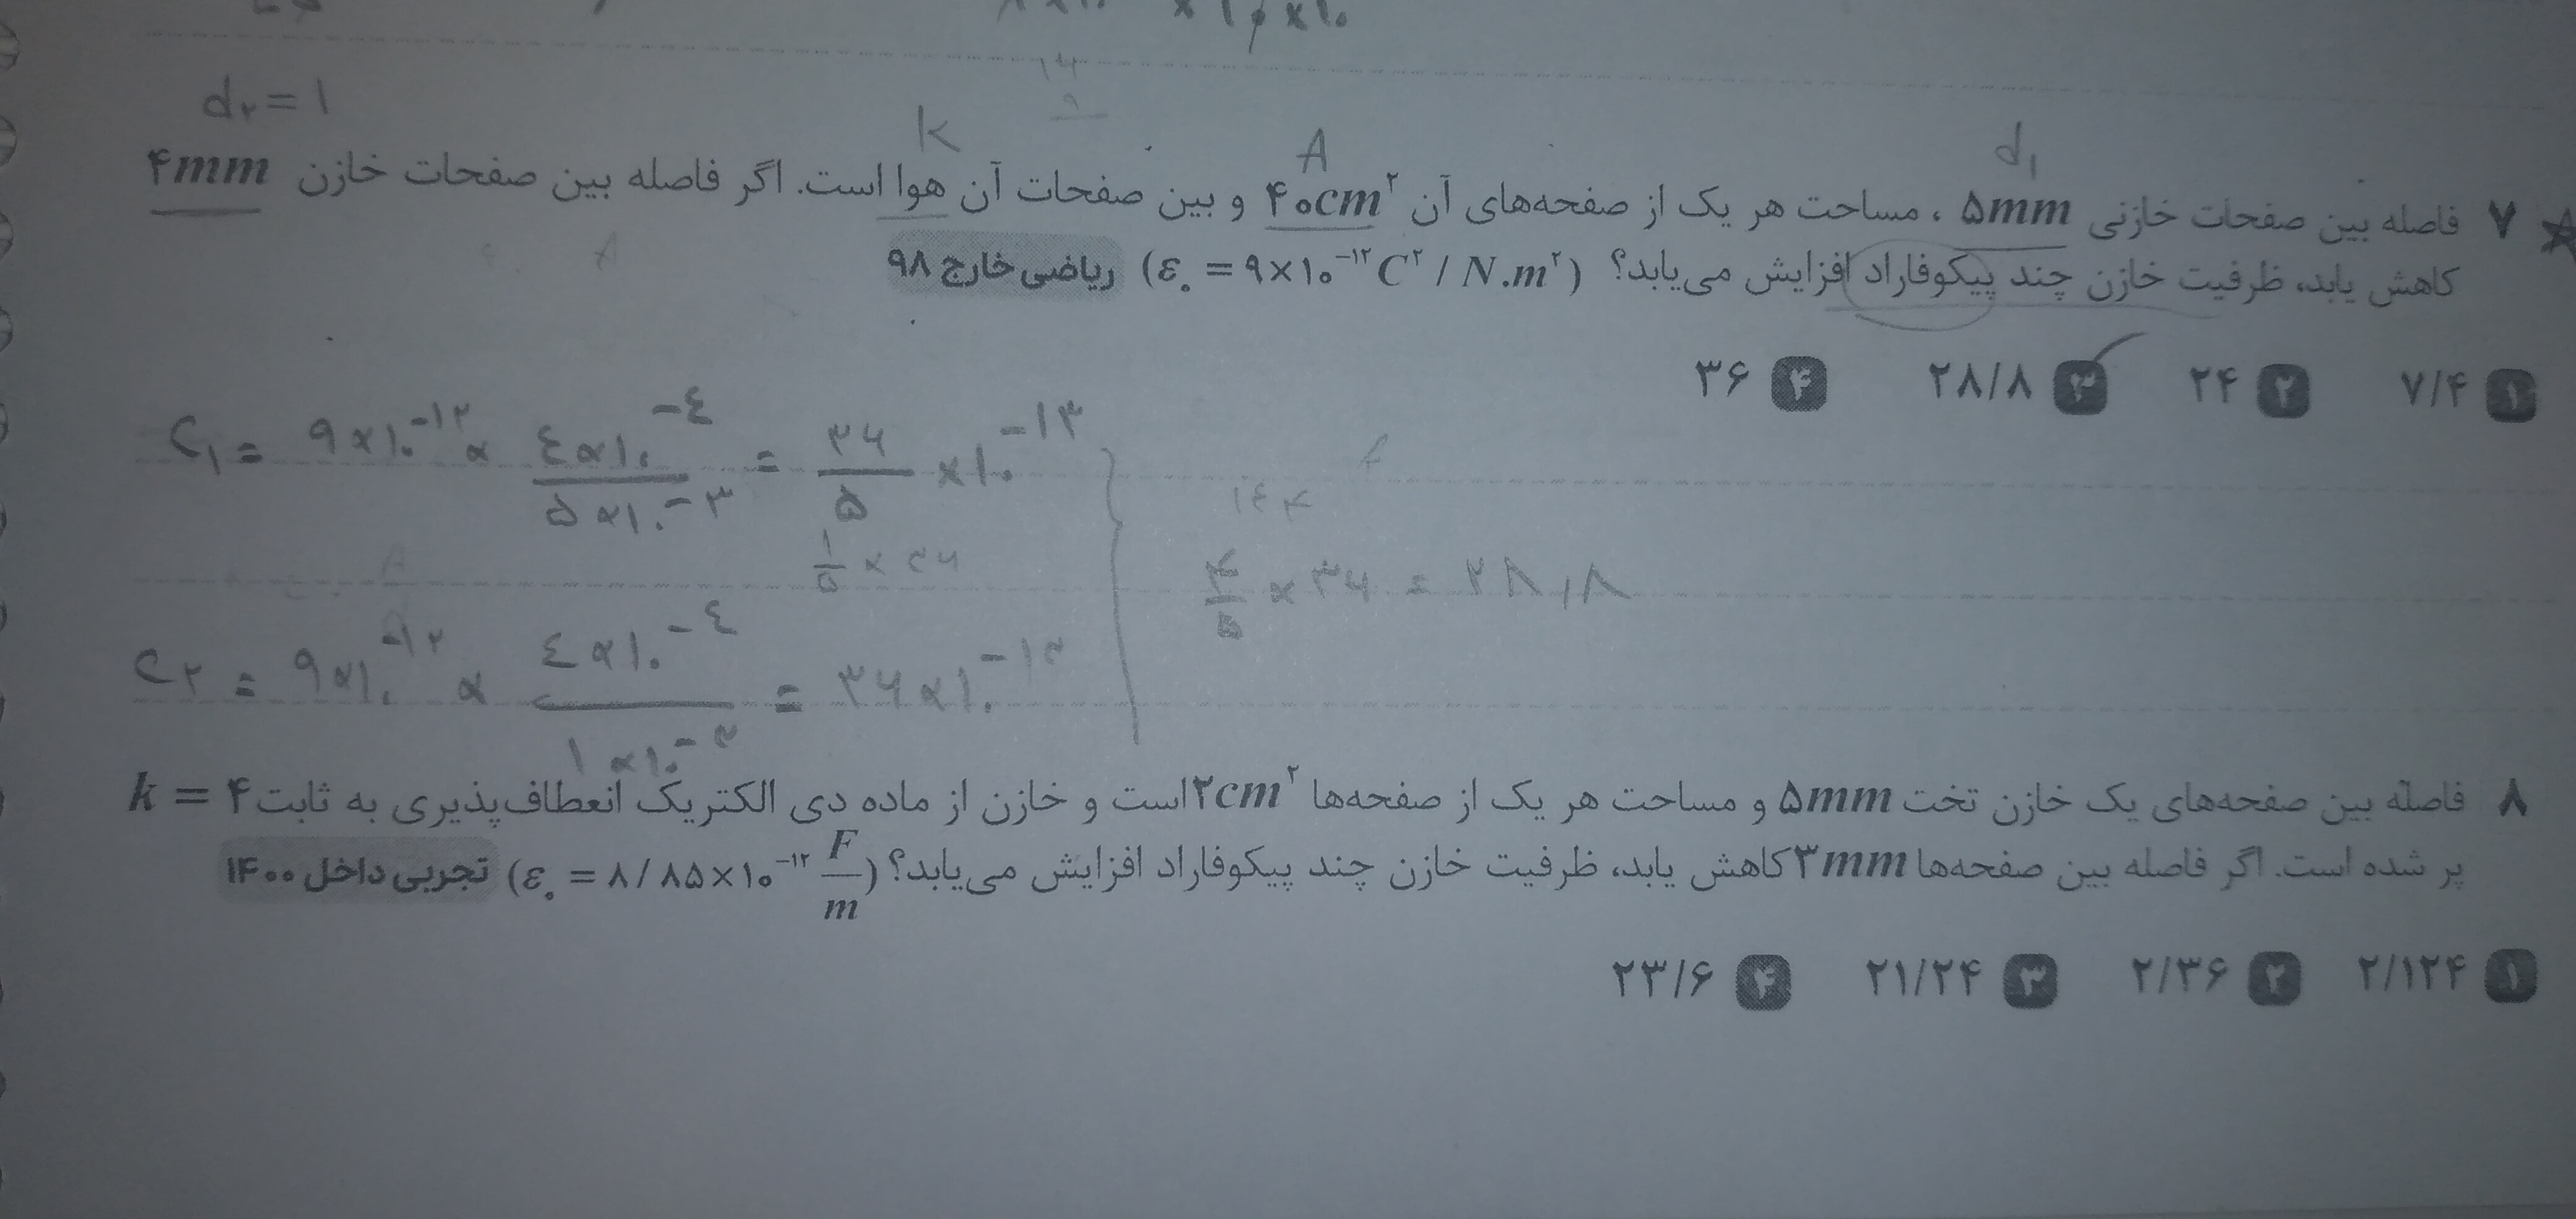 d₂ = ۱
k
A
d₁
۷ فاصله بین صفحات خازنی ۵mm ، مساحت هر یک از صفحه‌های آن ۴۰cm² و بین صفحات آن هوا است. اگر فاصله بین صفحات خازن ۴mm
کاهش یابد، ظرفیت خازن چند پیکوفاراد افزایش می‌یابد؟ (ε₀ = ۹×۱۰⁻¹² C² / N.m²) ریاضی خارج ۹۸
۱ ۷/۴ ۲ ۲۴ ۳ ۲۸/۸ ۴ ۳۶
C₁ = ۹×۱۰⁻¹² × (٤×۱۰⁻⁴)/(۵×۱۰⁻³) = ۳۶/۵ ×۱۰⁻¹³
۱/۵ × ۳۶
۱٤۴
۴/۵ × ۳۶ = ۲۸,۸
C₂ = ۹×۱۰⁻¹² × (٤×۱۰⁻⁴)/(۱×۱۰⁻³) = ۳۶×۱۰⁻¹³
۸ فاصله بین صفحه‌های یک خازن تخت ۵mm و مساحت هر یک از صفحه‌ها ۲cm² است و خازن از ماده دی الکتریک انعطاف‌پذیری به ثابت k = ۴
پر شده است. اگر فاصله بین صفحه‌ها ۳mm کاهش یابد، ظرفیت خازن چند پیکوفاراد افزایش می‌یابد؟ (ε₀ = ۸/۸۵×۱۰⁻¹² F/m) تجربی داخل ۱۴۰۰
۱ ۲/۱۲۴ ۲ ۲/۳۶ ۳ ۲۱/۲۴ ۴ ۲۳/۶